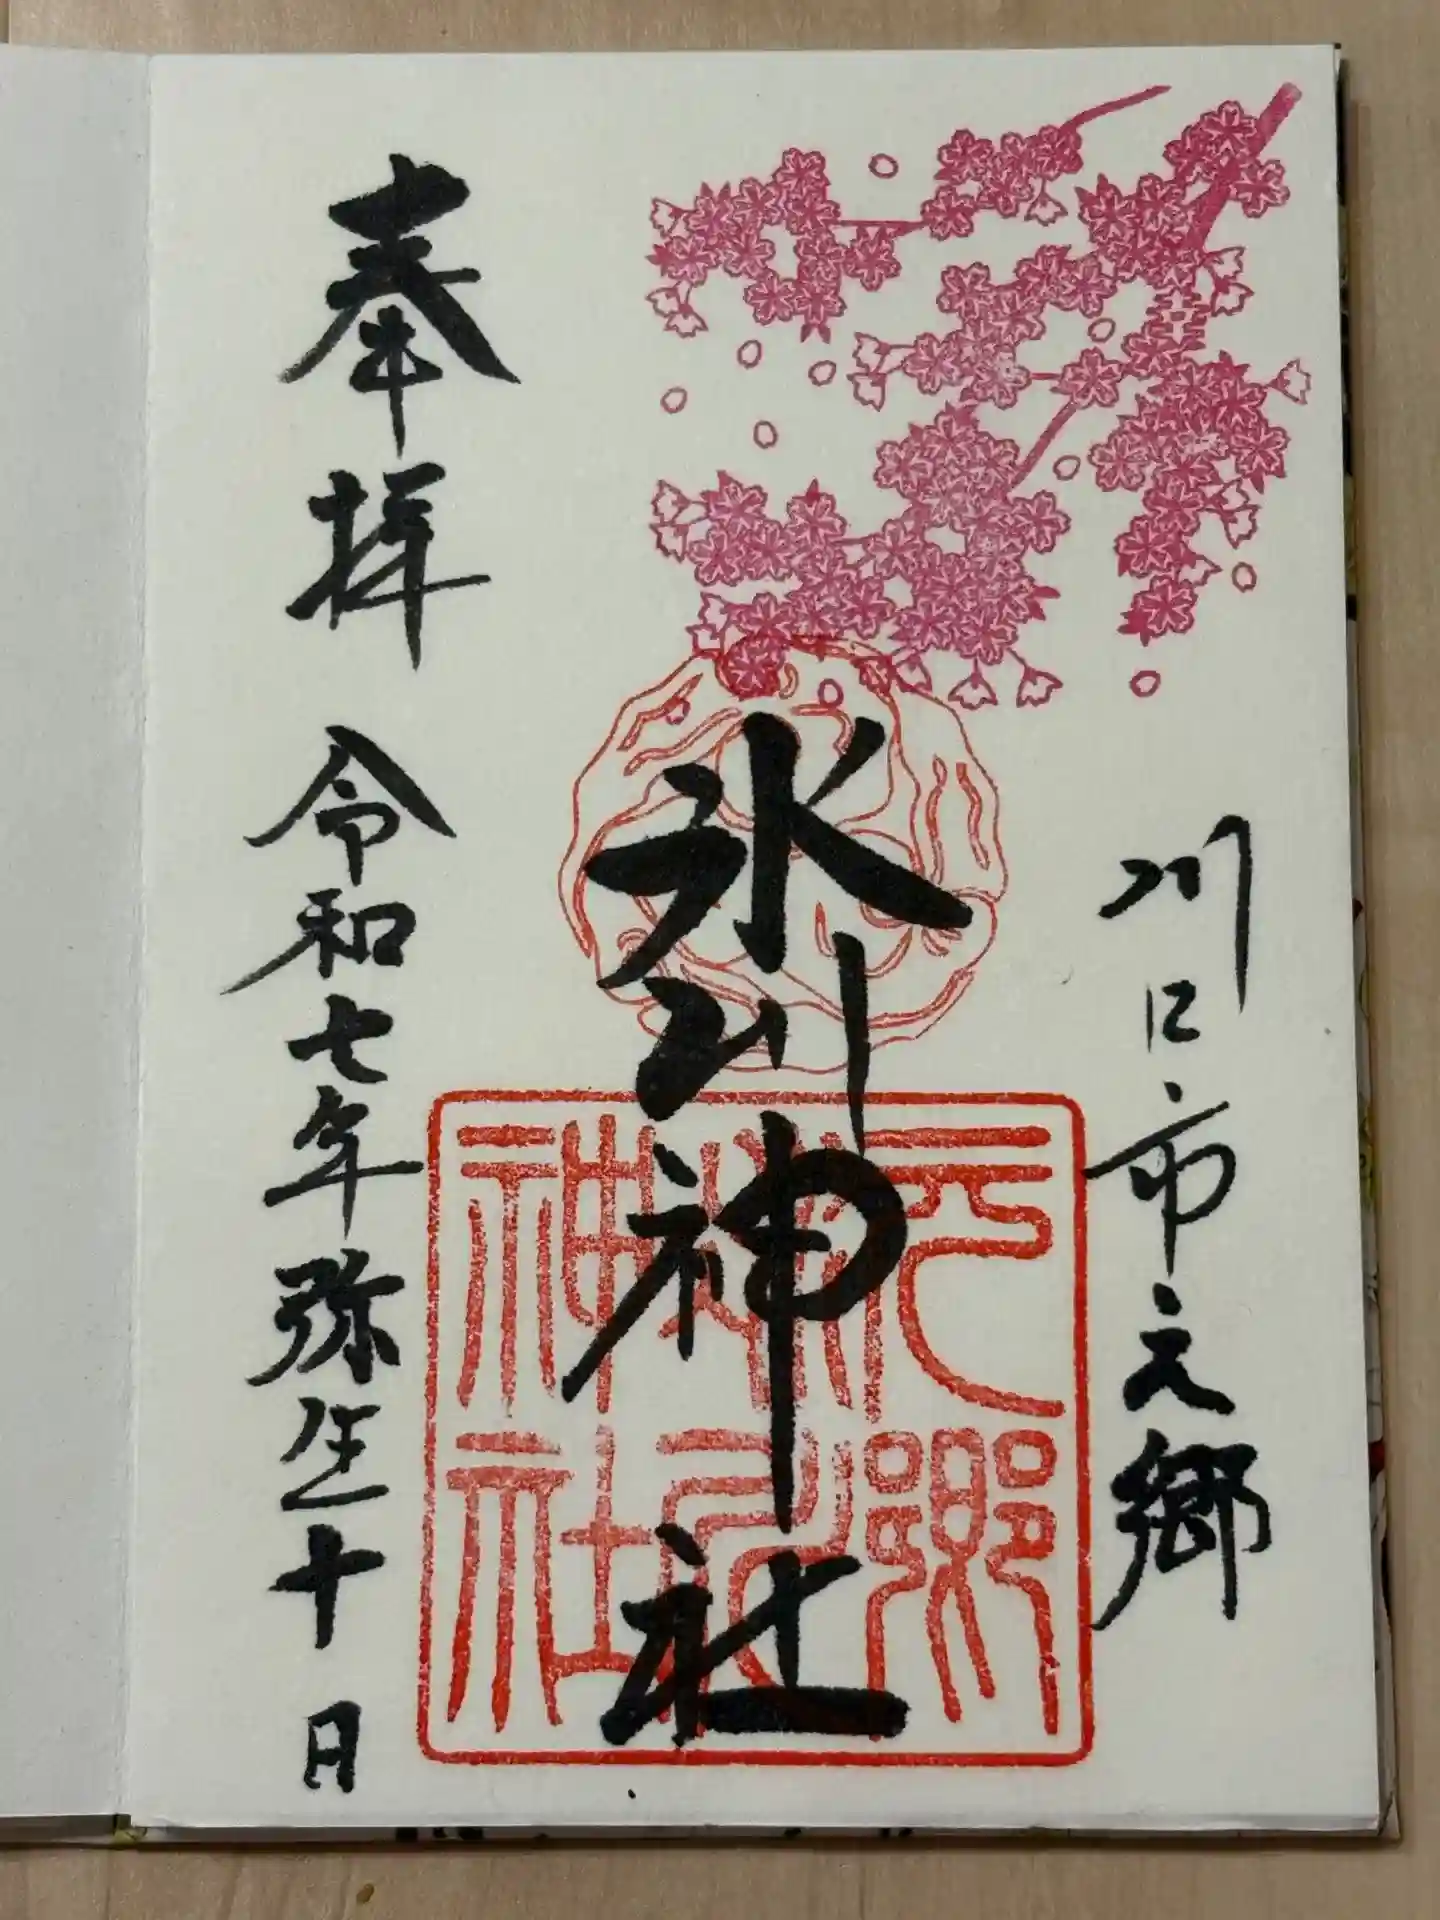 川口市元郷
氷川神社
奉拝 令和七年弥生十日
元郷
氷川
神社